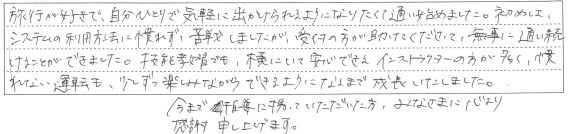 旅行が好きで、自分ひとりで気軽に出かけられるようになりたくて通い始めました。初めは、
システムの利用方法に慣れず、苦戦しましたが、受付の方が助けてくださって、無事に通い続
けることができました。技能教習でも、横にいて安心できるインストラクターの方が多く、慣
れない運転も、少しずつ楽しみながらできるようになるまで成長いたしました。
今まで指導に携っていただいた方、みなさまに心より
感謝申し上げます。